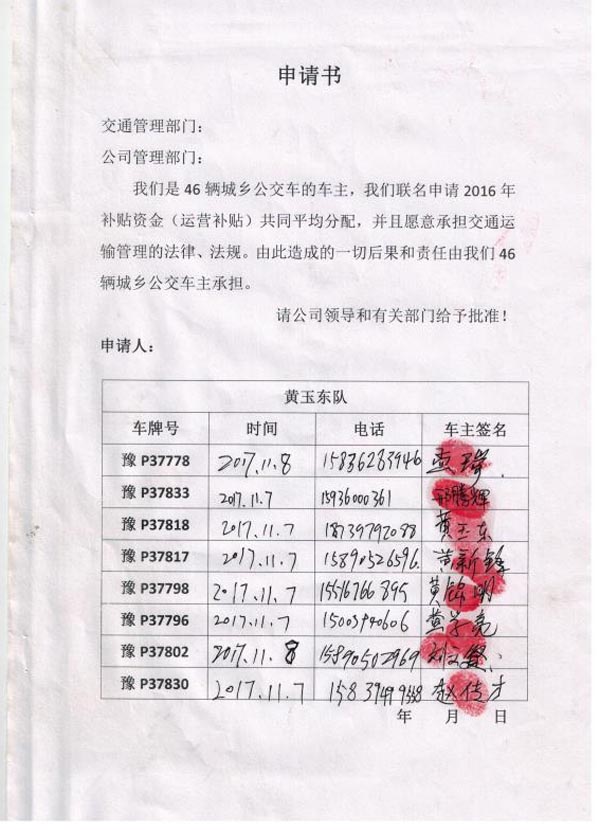 申请书
交通管理部门：
公司管理部门：
我们是 46 辆城乡公交车的车主，我们联名申请 2016 年
补贴资金（运营补贴）共同平均分配，并且愿意承担交通运
输管理的法律、法规。由此造成的一切后果和责任由我们 46
辆城乡公交车主承担。
请公司领导和有关部门给予批准！
申请人：
黄玉东队
车牌号 时间 电话 车主签名
豫 P37778 2017.11.8 15836283946
豫 P37833 2017.11.7 15936000361 邢腾辉
豫 P37818 2017.11.7 18739792088 黄玉东
豫 P37817 2017.11.7 15890526596. 黄新锋
豫 P37798 2017.11.7 15516766895 黄锦明
豫 P37796 2017.11.7 15003940606 黄学亮
豫 P37802 2017.11.8 15890502969
豫 P37830 2017.11.7 赵传才
年 月 日